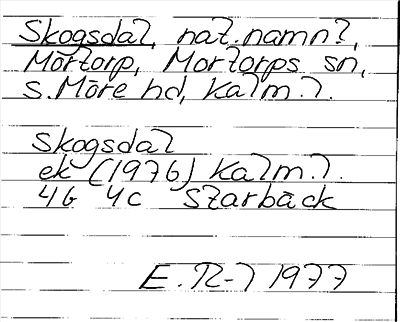 Skogsdal, nat.namn?,
Mōrtorp, Mortorps sn,
S.Mōre hd, Kalm.l.
Skogsdal
ek (1976) Kalm.l.
4G 4c Starbāck
E.R-l 1977